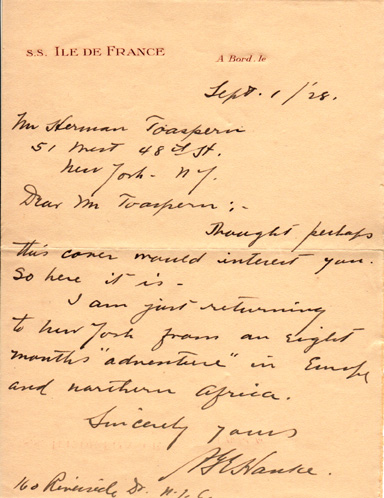 S.S. ILE DE FRANCE
A Bord, le
Sept. 1/'28.
Mr Herman Toaspern
51 West 48th St.
New York - N.Y.
Dear Mr Toaspern:-
Thought perhaps
this cover would interest you.
So here it is -
I am just returning
to New York from an eight
months "adventure" in Europe
and northern Africa.
Sincerely yours
Hanke.
160 Riverside Dr. N.Y.C.